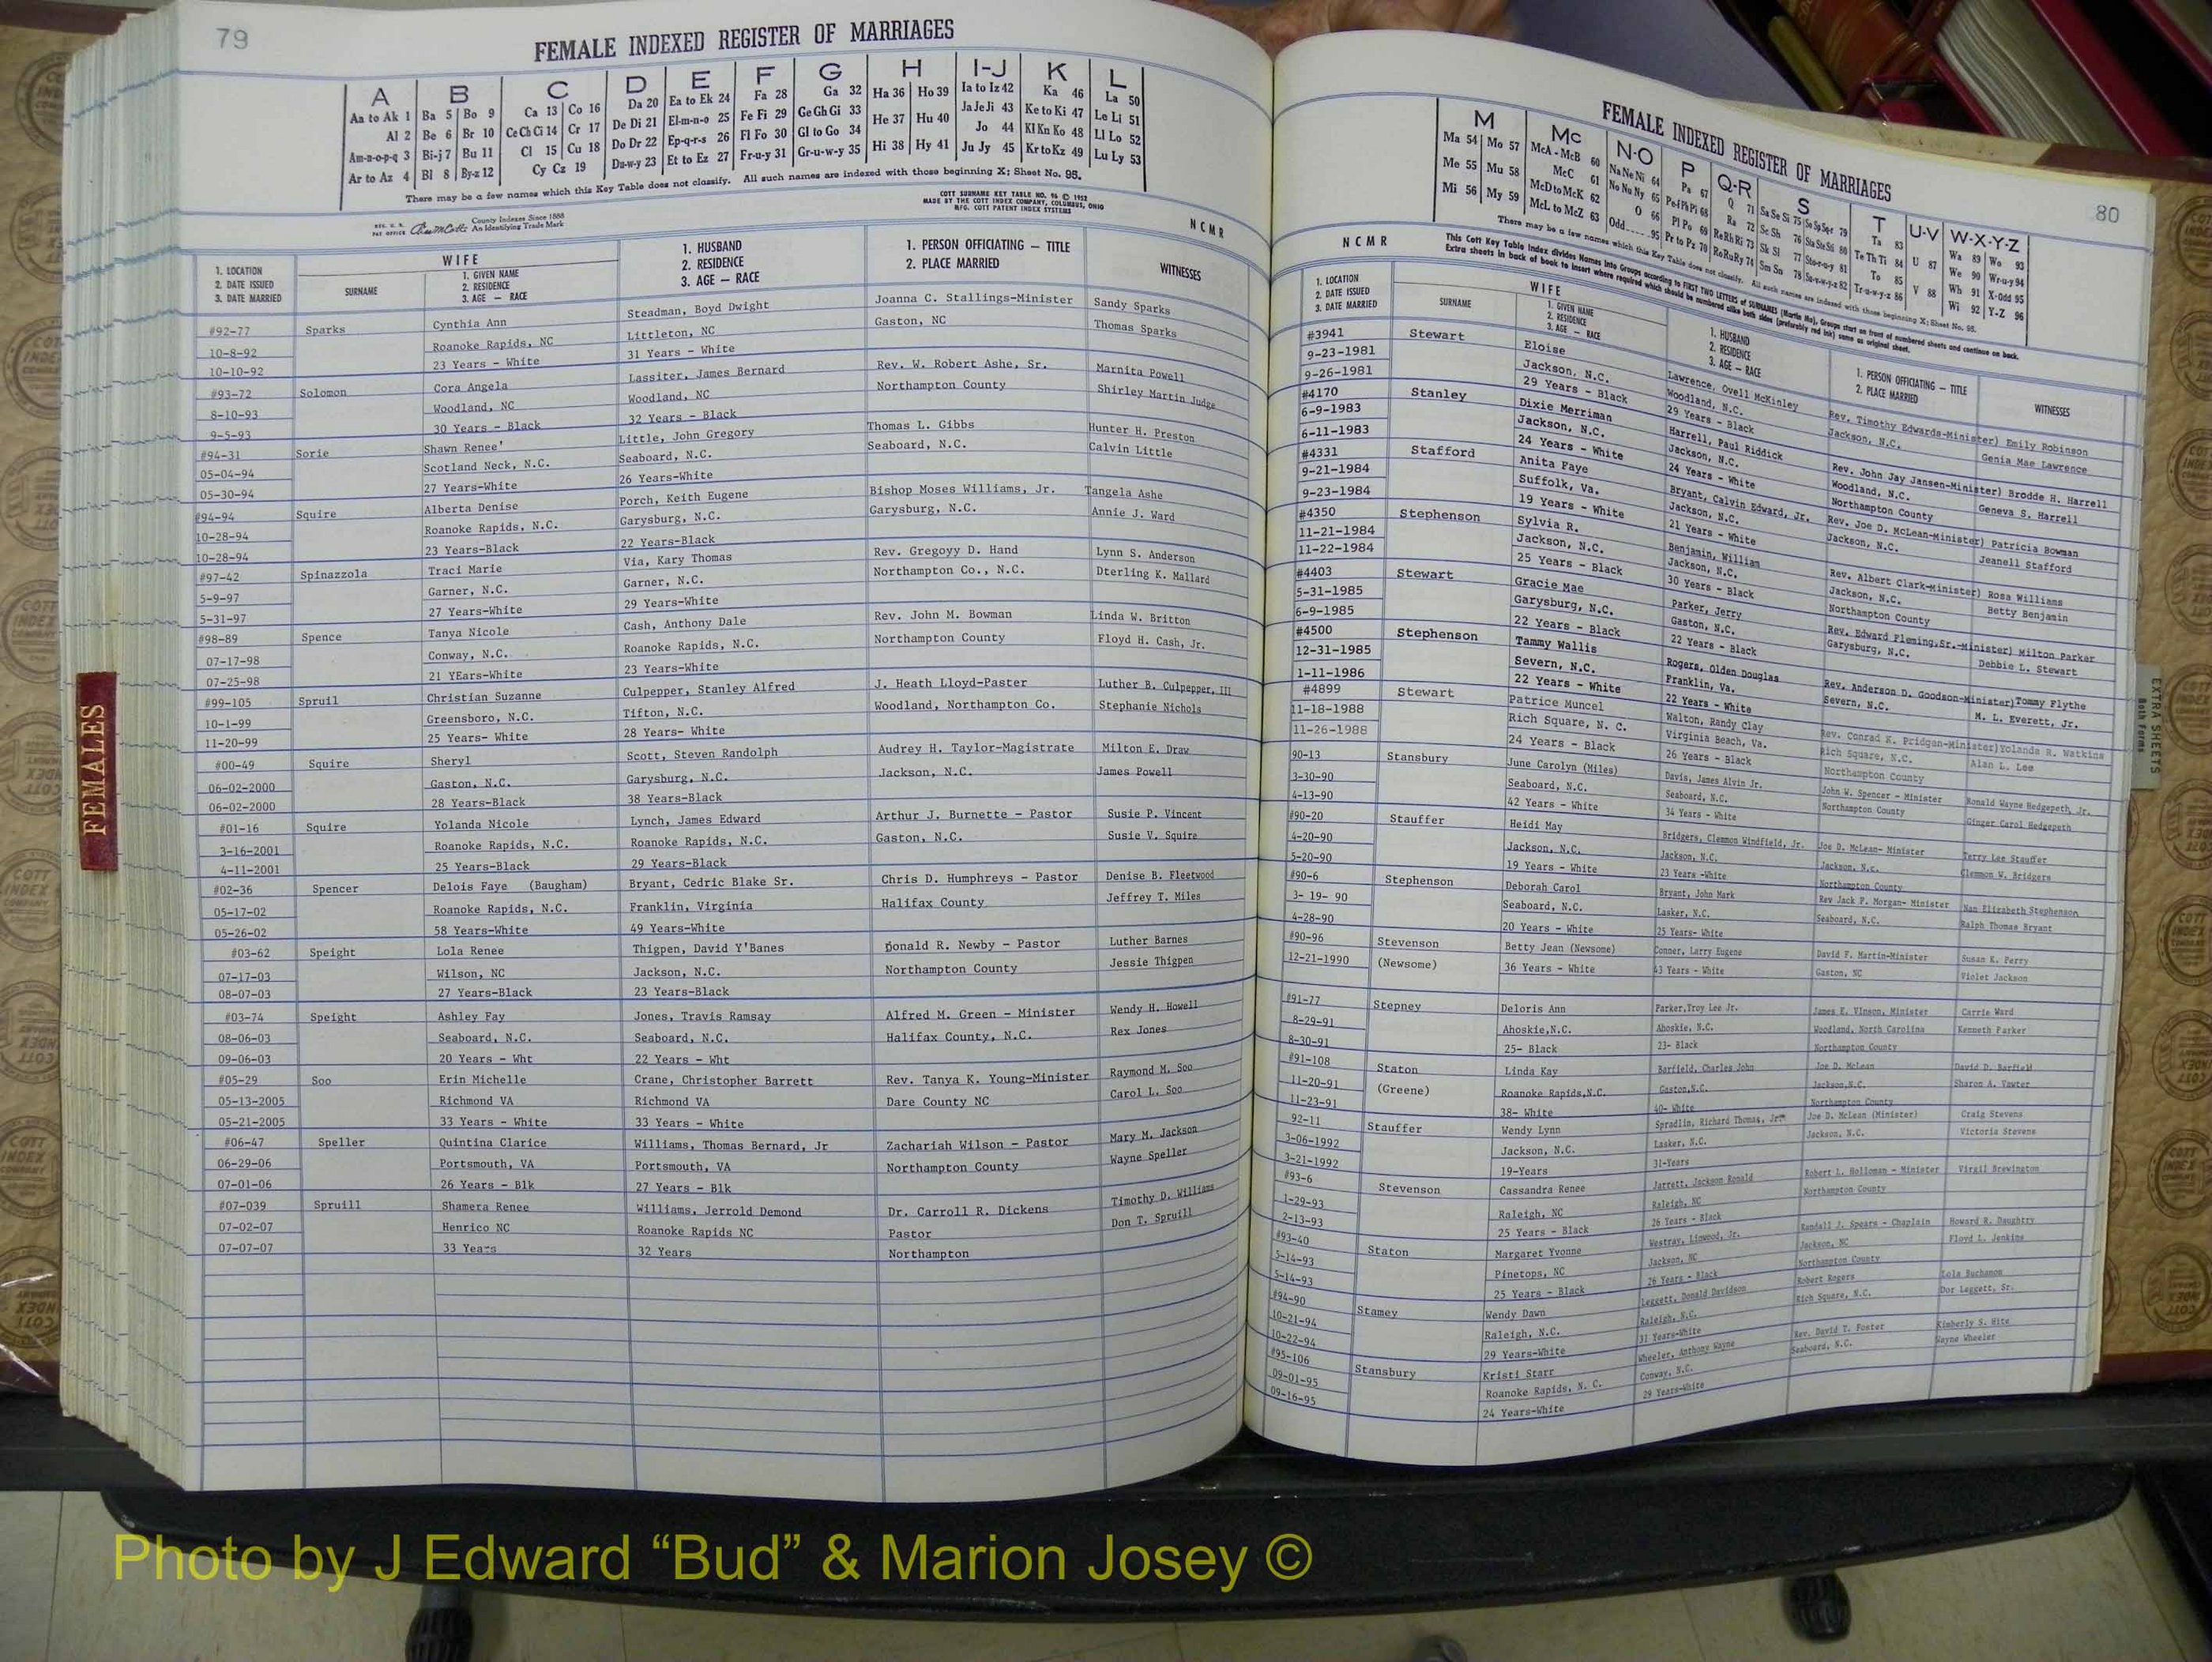 79
FEMALE INDEXED REGISTER OF MARRIAGES
A B C D E F G H I-J K L
Aa to Ak 1 Ba 5 Bo 9 Ca 13 Co 16 Da 20 Ea to Ek 24 Fa 28 Ga 32 Ha 36 Ho 39 Ia to Iz 42 Ka 46 La 50
Al 2 Be 6 Br 10 Ce Ch Ci 14 Cr 17 De Di 21 El-m-n-o 25 Fe Fi 29 Ge Gh Gi 33 He 37 Hu 40 Ja Je Ji 43 Ke to Ki 47 Le Li 51
Am-n-o-p-q 3 Bi-j 7 Bu 11 Cl 15 Cu 18 Do Dr 22 Ep-q-r-s 26 Fl Fo 30 Gl to Go 34 Jo 44 Kl Kn Ko 48 Ll Lo 52
Ar to Az 4 Bl 8 By-z 12 Cy Cz 19 Du-w-y 23 Et to Ez 27 Fr-u-y 31 Gr-u-w-y 35 Hi 38 Hy 41 Ju Jy 45 Kr to Kz 49 Lu Ly 53
There may be a few names which this Key Table does not classify. All such names are indexed with those beginning X; Sheet No. 95.
County Indexes Since 1888
An Identifying Trade Mark
COTT SURNAME KEY TABLE NO. 96 © 1952
MADE BY THE COTT INDEX COMPANY, COLUMBUS, OHIO
MFG. COTT PATENT INDEX SYSTEMS
NCMR
1. LOCATION
2. DATE ISSUED
3. DATE MARRIED
WIFE
SURNAME
1. GIVEN NAME
2. RESIDENCE
3. AGE — RACE
1. HUSBAND
2. RESIDENCE
3. AGE — RACE
1. PERSON OFFICIATING — TITLE
2. PLACE MARRIED
WITNESSES
#92-77 Sparks Cynthia Ann Steadman, Boyd Dwight Joanna C. Stallings-Minister Sandy Sparks
10-8-92 Roanoke Rapids, NC Littleton, NC Gaston, NC Thomas Sparks
10-10-92 23 Years - White 31 Years - White
#93-72 Solomon Cora Angela Lassiter, James Bernard Rev. W. Robert Ashe, Sr. Marnita Powell
8-10-93 Woodland, NC Woodland, NC Northampton County Shirley Martin Judge
9-5-93 30 Years - Black 32 Years - Black
#94-31 Sorie Shawn Renee' Little, John Gregory Thomas L. Gibbs Hunter H. Preston
05-04-94 Scotland Neck, N.C. Seaboard, N.C. Seaboard, N.C. Calvin Little
05-30-94 27 Years-White 26 Years-White
#94-94 Squire Alberta Denise Porch, Keith Eugene Bishop Moses Williams, Jr. Tangela Ashe
10-28-94 Roanoke Rapids, N.C. Garysburg, N.C. Garysburg, N.C. Annie J. Ward
10-28-94 23 Years-Black 22 Years-Black
#97-42 Spinazzola Traci Marie Via, Kary Thomas Rev. Gregoyy D. Hand Lynn S. Anderson
5-9-97 Garner, N.C. Garner, N.C. Northampton Co., N.C. Dterling K. Mallard
5-31-97 27 Years-White 29 Years-White
#98-89 Spence Tanya Nicole Cash, Anthony Dale Rev. John M. Bowman Linda W. Britton
07-17-98 Conway, N.C. Roanoke Rapids, N.C. Northampton County Floyd H. Cash, Jr.
07-25-98 21 YEars-White 23 Years-White
#99-105 Spruil Christian Suzanne Culpepper, Stanley Alfred J. Heath Lloyd-Paster Luther B. Culpepper, III
10-1-99 Greensboro, N.C. Tifton, N.C. Woodland, Northampton Co. Stephanie Nichols
11-20-99 25 Years- White 28 Years- White
#00-49 Squire Sheryl Scott, Steven Randolph Audrey H. Taylor-Magistrate Milton E. Draw
06-02-2000 Gaston, N.C. Garysburg, N.C. Jackson, N.C. James Powell
06-02-2000 28 Years-Black 38 Years-Black
#01-16 Squire Yolanda Nicole Lynch, James Edward Arthur J. Burnette - Pastor Susie P. Vincent
3-16-2001 Roanoke Rapids, N.C. Roanoke Rapids, N.C. Gaston, N.C. Susie V. Squire
4-11-2001 25 Years-Black 29 Years-Black
#02-36 Spencer Delois Faye (Baugham) Bryant, Cedric Blake Sr. Chris D. Humphreys - Pastor Denise B. Fleetwood
05-17-02 Roanoke Rapids, N.C. Franklin, Virginia Halifax County Jeffrey T. Miles
05-26-02 58 Years-White 49 Years-White
#03-62 Speight Lola Renee Thigpen, David Y'Banes Donald R. Newby - Pastor Luther Barnes
07-17-03 Wilson, NC Jackson, N.C. Northampton County Jessie Thigpen
08-07-03 27 Years-Black 23 Years-Black
#03-74 Speight Ashley Fay Jones, Travis Ramsay Alfred M. Green - Minister Wendy H. Howell
08-06-03 Seaboard, N.C. Seaboard, N.C. Halifax County, N.C. Rex Jones
09-06-03 20 Years - Wht 22 Years - Wht
#05-29 Soo Erin Michelle Crane, Christopher Barrett Rev. Tanya K. Young-Minister Raymond M. Soo
05-13-2005 Richmond VA Richmond VA Dare County NC Carol L. Soo
05-21-2005 33 Years - White 33 Years - White
#06-47 Speller Quintina Clarice Williams, Thomas Bernard, Jr Zachariah Wilson - Pastor Mary M. Jackson
06-29-06 Portsmouth, VA Portsmouth, VA Northampton County Wayne Speller
07-01-06 26 Years - Blk 27 Years - Blk
#07-039 Spruill Shamera Renee Williams, Jerrold Demond Dr. Carroll R. Dickens Timothy D. Williams
07-02-07 Henrico NC Roanoke Rapids NC Pastor Don T. Spruill
07-07-07 33 Years 32 Years Northampton
FEMALES
80
FEMALE INDEXED REGISTER OF MARRIAGES
M Mc N-O P Q-R S T U-V W-X-Y-Z
Ma 54 Mo 57 McA - McB 60 Na Ne Ni 64 Pa 67 Q 71 Sa Se Si 75 So Sp Sq-r 79 Ta 83 U 87 Wa 89 Wo 93
Me 55 Mu 58 McC 61 No Nu Ny 65 Pe-f Ph Pi 68 Ra 72 Sc Sh 76 Sta Ste Sti 80 Te Th Ti 84 V 88 We 90 Wr-u-y 94
Mi 56 My 59 McD to McK 62 O 66 Pl Po 69 Re Rh Ri 73 Sk Sl 77 Sto-r-u-y 81 To 85 Wh 91 X-Odd 95
McL to McZ 63 Odd 95 Pr to Pz 70 Ro Ru Ry 74 Sm Sn 78 Su-v-w-y-z 82 Tr-u-w-y-z 86 Wi 92 Y-Z 96
There may be a few names which this Key Table does not classify. All such names are indexed with those beginning X; Sheet No. 95.
This Cott Key Table Index divides Names into Groups according to FIRST TWO LETTERS of SURNAMES (Martin Ma), Groups start on front of numbered sheets and continue on back.
Extra sheets in back of book to insert where required which should be numbered alike both sides (preferably red ink) same as original sheet.
NCMR
1. LOCATION
2. DATE ISSUED
3. DATE MARRIED
WIFE
SURNAME
1. GIVEN NAME
2. RESIDENCE
3. AGE — RACE
1. HUSBAND
2. RESIDENCE
3. AGE — RACE
1. PERSON OFFICIATING — TITLE
2. PLACE MARRIED
WITNESSES
#3941 Stewart Eloise Lawrence, Ovell McKinley Rev. Timothy Edwards-Minister) Emily Robinson
9-23-1981 Jackson, N.C. Woodland, N.C. Jackson, N.C. Genia Mae Lawrence
9-26-1981 29 Years - Black 29 Years - Black
#4170 Stanley Dixie Merriman Harrell, Paul Riddick Rev. John Jay Jansen-Minister) Brodde H. Harrell
6-9-1983 Jackson, N.C. Jackson, N.C. Woodland, N.C. Geneva S. Harrell
6-11-1983 24 Years - White 24 Years - White Northampton County
#4331 Stafford Anita Faye Bryant, Calvin Edward, Jr. Rev. Joe D. McLean-Minister) Patricia Bowman
9-21-1984 Suffolk, Va. Jackson, N.C. Jackson, N.C. Jeanell Stafford
9-23-1984 19 Years - White 21 Years - White
#4350 Stephenson Sylvia R. Benjamin, William Rev. Albert Clark-Minister) Rosa Williams
11-21-1984 Jackson, N.C. Jackson, N.C. Jackson, N.C. Betty Benjamin
11-22-1984 25 Years - Black 30 Years - Black Northampton County
#4403 Stewart Gracie Mae Parker, Jerry Rev. Edward Fleming, Sr.-Minister) Milton Parker
5-31-1985 Garysburg, N.C. Gaston, N.C. Garysburg, N.C. Debbie L. Stewart
6-9-1985 22 Years - Black 22 Years - Black
#4500 Stephenson Tammy Wallis Rogers, Olden Douglas Rev. Anderson D. Goodson-Minister) Tommy Flythe
12-31-1985 Severn, N.C. Franklin, Va. Severn, N.C. M. L. Everett, Jr.
1-11-1986 22 Years - White 22 Years - White
#4899 Stewart Patrice Muncel Walton, Randy Clay Rev. Conrad K. Pridgen-Minister) Yolanda R. Watkins
11-18-1988 Rich Square, N. C. Virginia Beach, Va. Rich Square, N.C. Alan L. Lee
11-26-1988 24 Years - Black 26 Years - Black Northampton County
90-13 Stansbury June Carolyn (Miles) Davis, James Alvin Jr. John W. Spencer - Minister Ronald Wayne Hedgepeth, Jr.
3-30-90 Seaboard, N.C. Seaboard, N.C. Northampton County Ginger Carol Hedgepeth
4-13-90 42 Years - White 34 Years - White
#90-20 Stauffer Heidi May Bridgers, Clemmon Windfield, Jr. Joe D. McLean- Minister Terry Lee Stauffer
4-20-90 Jackson, N.C. Jackson, N.C. Jackson, N.c. Clemmon W. Bridgers
5-20-90 19 Years - White 23 Years -White Northampton County
#90-6 Stephenson Deborah Carol Bryant, John Mark Rev Jack F. Morgan- Minister Nan Elizabeth Stephenson
3- 19- 90 Seaboard, N.C. Lasker, N.C. Seaboard, N.C. Ralph Thomas Bryant
4-28-90 20 Years - White 25 Years- White
#90-96 Stevenson Betty Jean (Newsome) Conner, Larry Eugene David F. Martin-Minister Susan K. Perry
12-21-1990 (Newsome) 36 Years - White 43 Years - White Gaston, NC Violet Jackson
#91-77 Stepney Deloris Ann Parker,Troy Lee Jr. James E. Vinson, Minister Carrie Ward
8-29-91 Ahoskie,N.C. Ahoskie, N.C. Woodland, North Carolina Kenneth Parker
8-30-91 25- Black 23- Black Northampton County
#91-108 Staton Linda Kay Barfield, Charles John Joe D. McLean David D. Barfield
11-20-91 (Greene) Roanoke Rapids,N.C. Gaston,N.C. Jackson,N.C. Sharon A. Vawter
11-23-91 38- White 40- White Northampton County
92-11 Stauffer Wendy Lynn Spradlin, Richard Thomas, Jr. Joe D. McLean (Minister) Craig Stevens
3-06-1992 Jackson, N.C. Lasker, N.C. Jackson, N.C. Victoria Stevens
3-21-1992 19-Years 31-Years
#93-6 Stevenson Cassandra Renee Jarrett, Jackson Ronald Robert L. Holloman - Minister Virgil Brewington
1-29-93 Raleigh, NC Raleigh, NC Northampton County
2-13-93 25 Years - Black 26 Years - Black
#93-40 Staton Margaret Yvonne Westray, Linwood, Jr. Randall J. Spears - Chaplain Howard R. Daughtry
5-14-93 Pinetops, NC Jackson, NC Jackson, NC Floyd L. Jenkins
5-14-93 25 Years - Black 26 Years - Black Northampton County
#94-90 Stamey Wendy Dawn Leggett, Donald Davidson Robert Rogers Lola Buchanon
10-21-94 Raleigh, N.C. Raleigh, N.C. Rich Square, N.C. Dor Leggett, Sr.
10-22-94 29 Years-White 31 Years-White
#95-106 Stansbury Kristi Starr Wheeler, Anthony Wayne Rev. David T. Foster Kimberly S. Hite
09-01-95 Roanoke Rapids, N. C. Conway, N.C. Seaboard, N.C. Wayne Wheeler
09-16-95 24 Years-White 29 Years-White
EXTRA SHEETS
Both Forms
Photo by J Edward “Bud” & Marion Josey ©